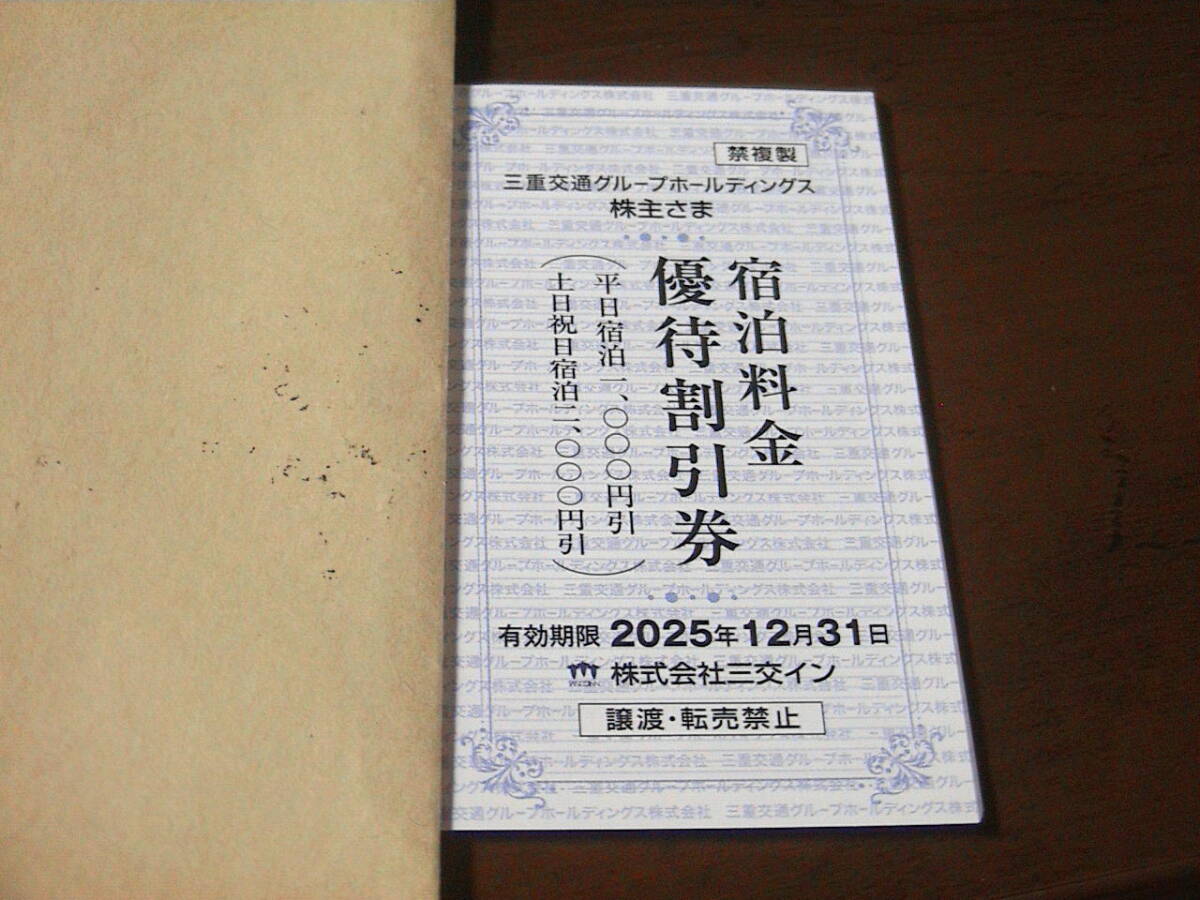 禁複製
三重交通グループホールディングス
株主さま
宿泊料金
優待割引券
平日宿泊一、〇〇〇円引
土日祝日宿泊二、〇〇〇円引
有効期限 2025年12月31日
株式会社三交イン
譲渡・転売禁止
三重交通グループホールディングス株式会社